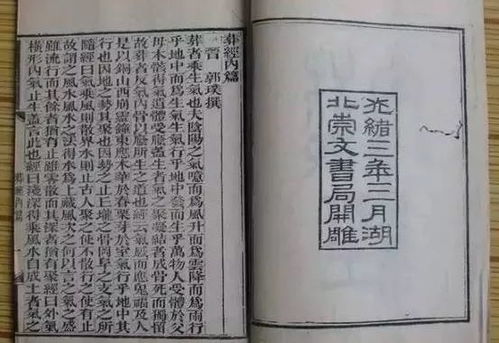 光緒三年三月湖
北崇文書局開雕
葬經內篇
晉 郭璞撰
葬者乘生氣也夫陰陽之氣噫而爲風升而爲雲降而爲雨行
乎地中而爲生氣生氣行乎地中發而生乎萬物人受體於父
母本骸得氣遺體受廕蓋生者氣之聚凝結者成骨死而獨留
故葬者反氣內骨以廕所生之道也經云氣感而應鬼福及人
是以銅山西崩靈鐘東應木華於春栗芽於室氣行乎地中其
行也因地之勢其聚也因勢之止丘壠之骨岡阜之支氣之所
隨經曰氣乘風則散界水則止古人聚之使不散行之使有止
故謂之風水風水之法得水爲上藏風次之何以言之氣之盛
雖流行而其餘者猶有止雖零散而其深者猶有聚經曰外氣
橫形內氣止生蓋言此也經曰淺深得乘風水自成土者氣之